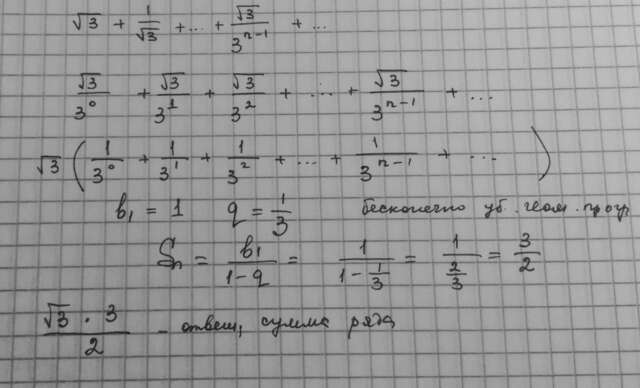 √3 + 1/√3 + ... + √3/3^(n-1) + ...
√3/3^0 + √3/3^1 + √3/3^2 + ... + √3/3^(n-1) + ...
√3 (1/3^0 + 1/3^1 + 1/3^2 + ... + 1/3^(n-1) + ... )
b₁ = 1 q = 1/3 бесконечно уб. геом. прогр
Sn = b₁/(1-q) = 1/(1-1/3) = 1/(2/3) = 3/2
√3 · 3/2 - ответ, сумма ряда